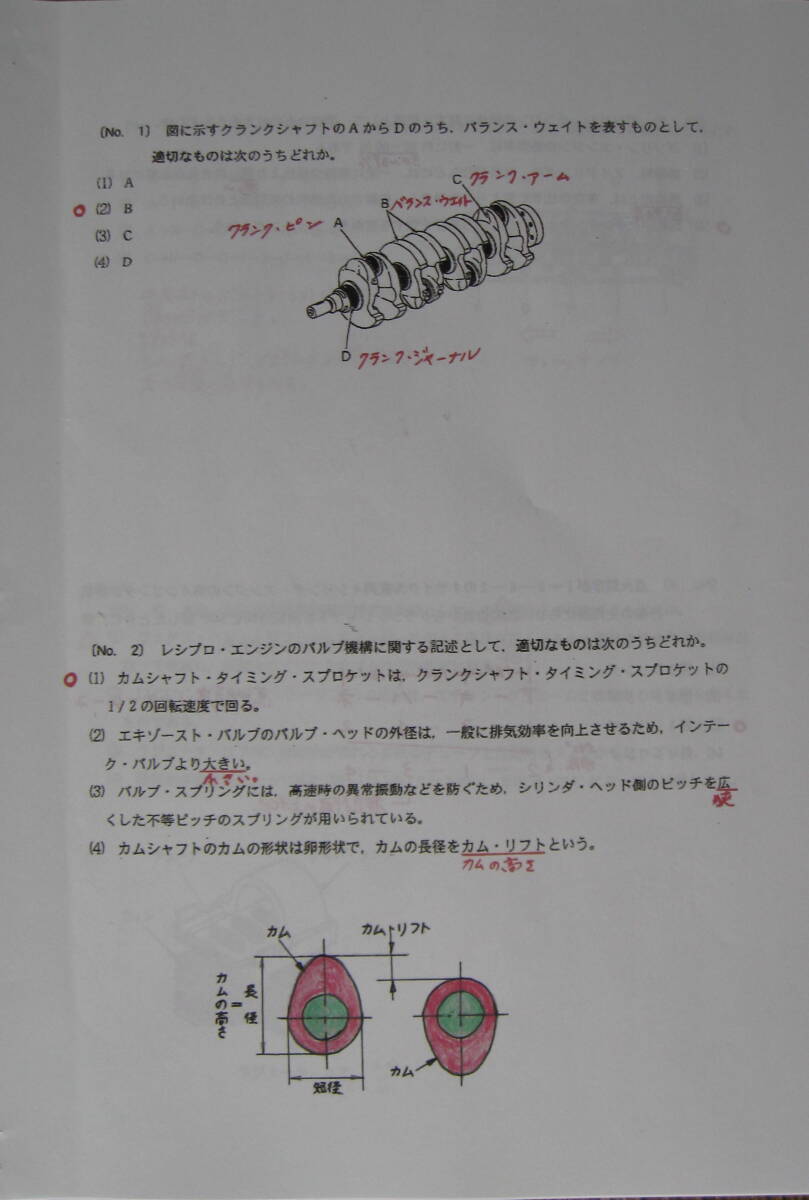 〔No. 1〕 図に示すクランクシャフトのAからDのうち，バランス・ウェイトを表すものとして，
適切なものは次のうちどれか。
(1) A
(2) B
(3) C
(4) D
C クランク・アーム
B バランス・ウエイト
クランク・ピン A
D クランク・ジャーナル
〔No. 2〕 レシプロ・エンジンのバルブ機構に関する記述として，適切なものは次のうちどれか。
(1) カムシャフト・タイミング・スプロケットは，クランクシャフト・タイミング・スプロケットの
1/2の回転速度で回る。
(2) エキゾースト・バルブのバルブ・ヘッドの外径は，一般に排気効率を向上させるため，インテー
ク・バルブより大きい。
小さい。
(3) バルブ・スプリングには，高速時の異常振動などを防ぐため，シリンダ・ヘッド側のピッチを広
狭
くした不等ピッチのスプリングが用いられている。
(4) カムシャフトのカムの形状は卵形状で，カムの長径をカム・リフトという。
カムの高さ
カム
カム・リフト
長径
=
カムの高さ
短径
カム